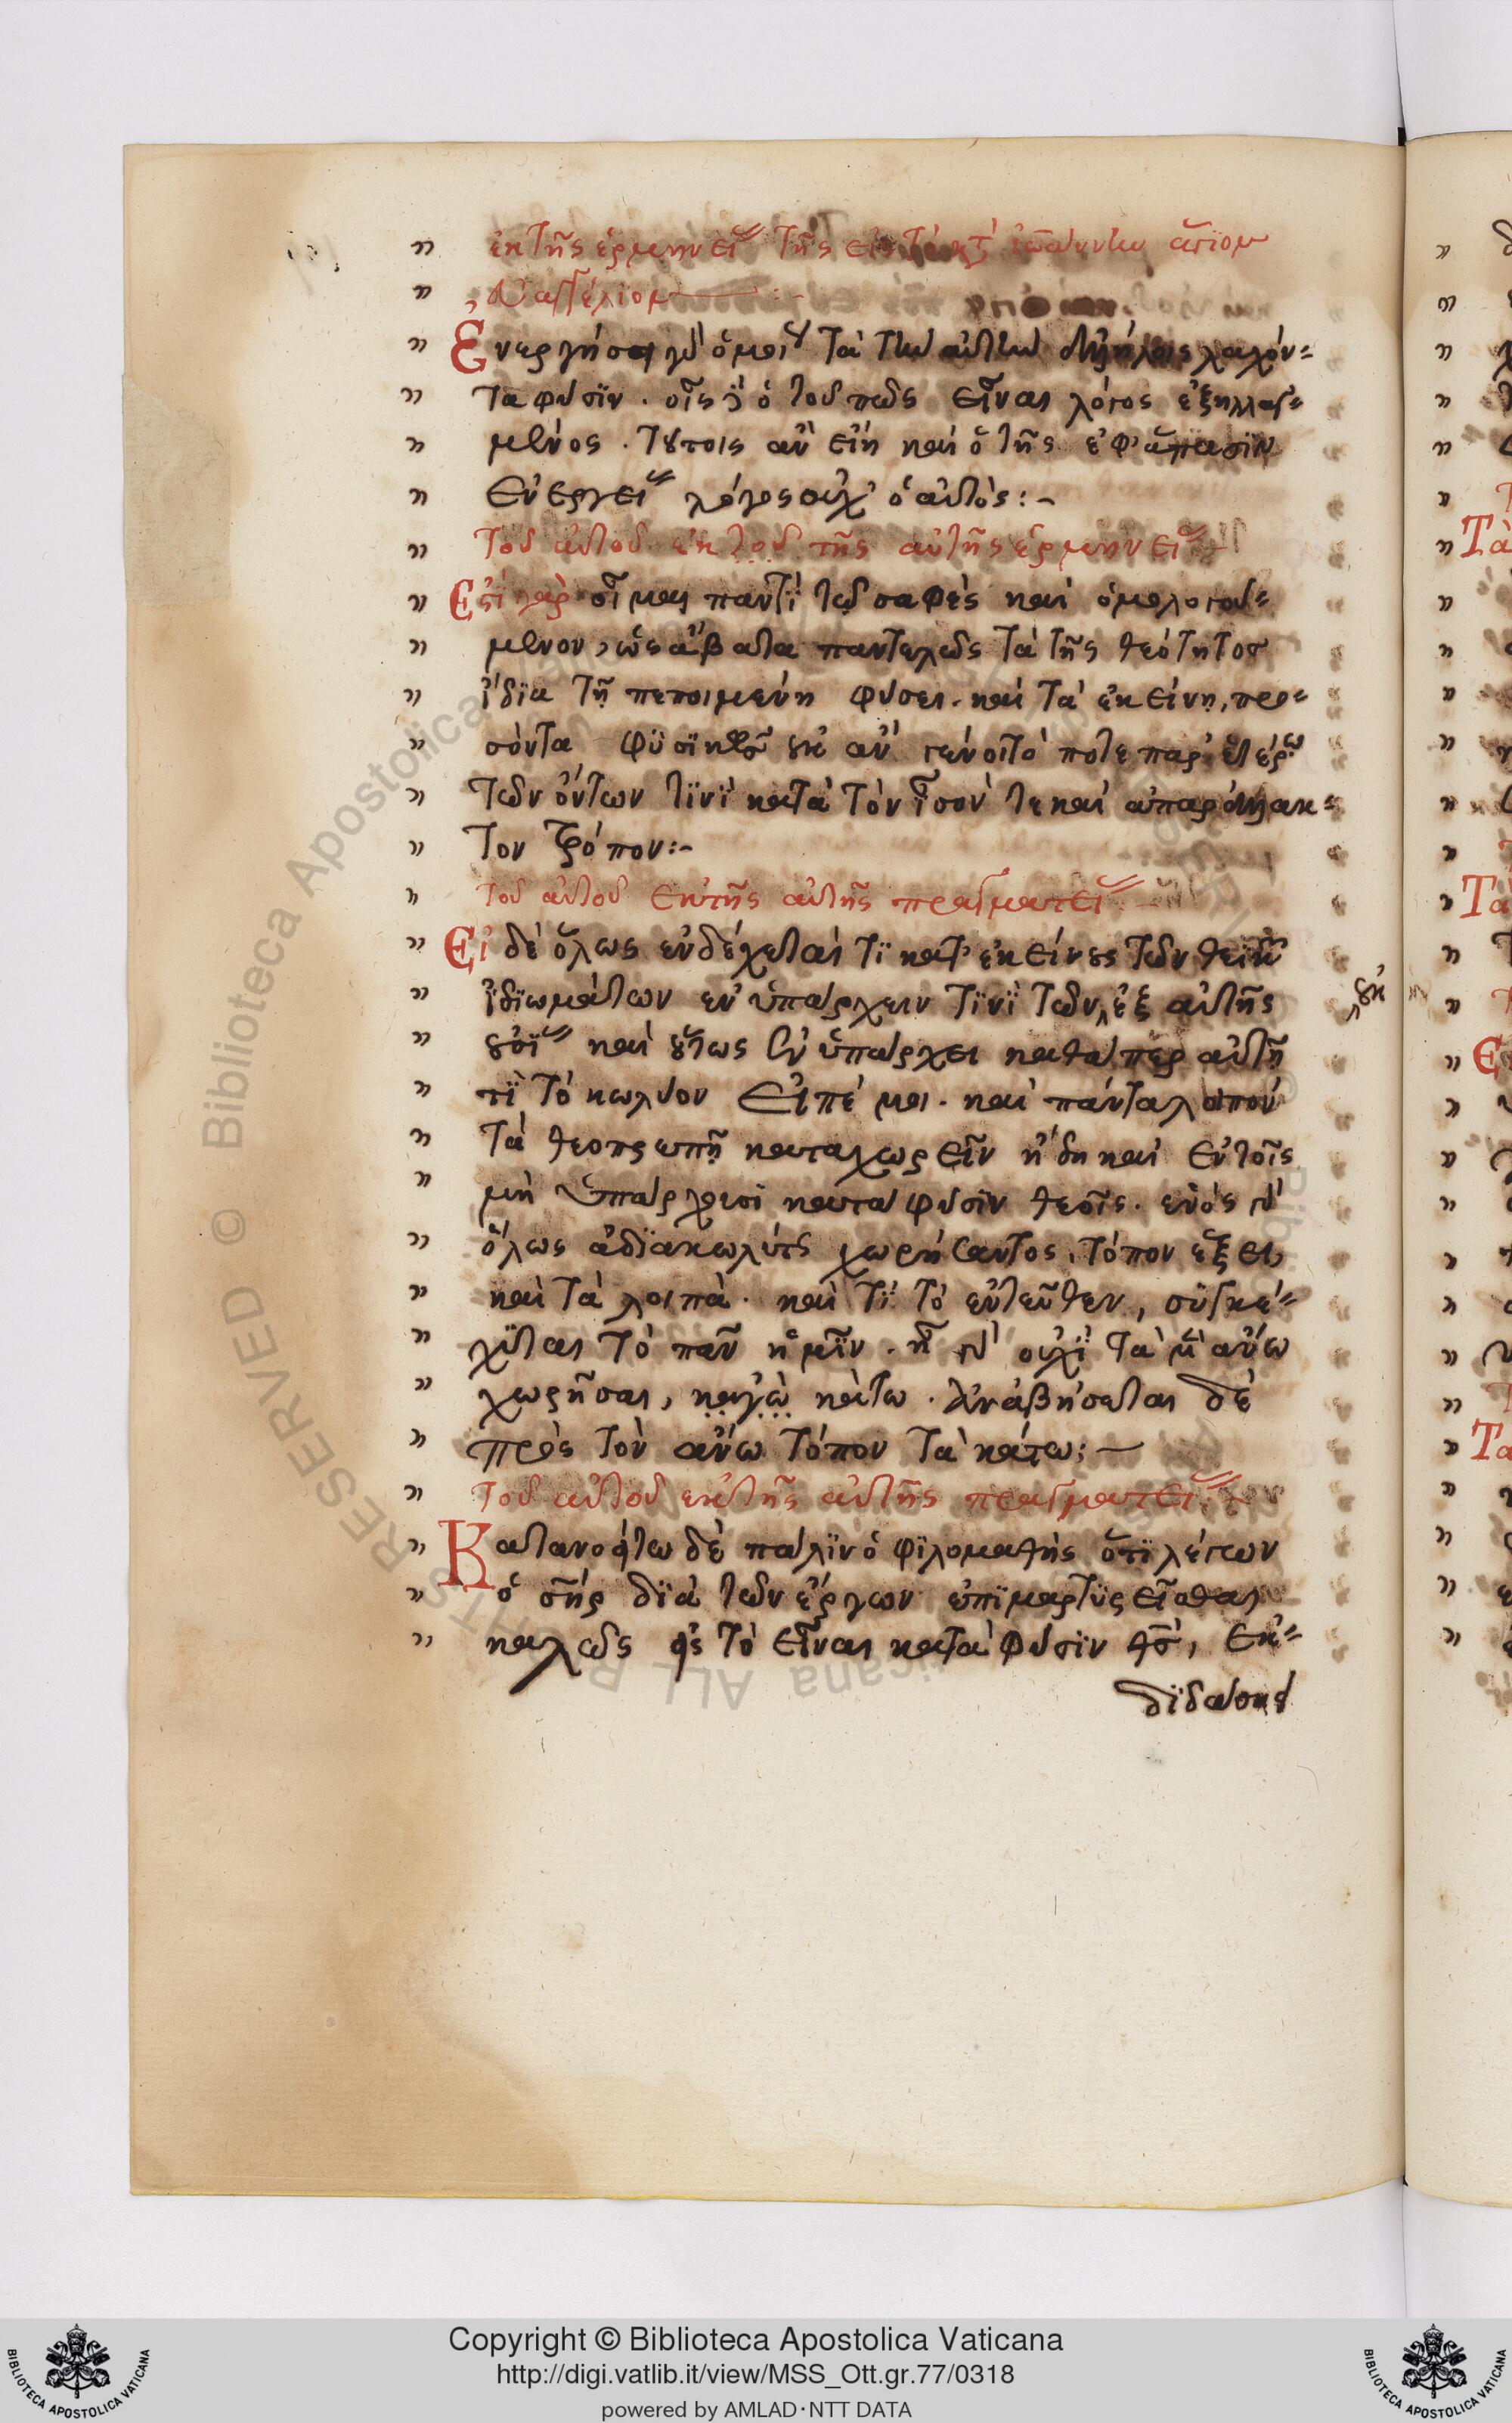 ἐκ τῆς ἑρμηνεί(ας) τῆς εἰς τὸ κατ' ἰωάννην ἅγιον
εὐαγγέλιον
Ἐνεργήσαι γὰρ ὁμοί(ως) τὰ τὴν αὐτὴν ἀλλήλοις λαχόν-
τα φύσϊν. οἷς δὲ ὁ τοῦ πῶς εἶναι λόγος ἐξηλλαγ-
μένος. τούτοις ἂν εἴη καὶ ὁ τῆς ἐφ' ἅπασϊν
ἐνεργεί(ας) λόγος οὐχ' ὁ αὐτὸς:-
τοῦ αὐτοῦ ἐκ τῆς αὐτῆς ἑρμηνεί(ας)
Ἐστὶ γὰρ οἶμαι παντῒ τῷ σαφὲς καὶ ὁμολογού-
μενον, ὡς ἄβατα παντελῶς τὰ τῆς θεότητος
ἴδϊα τῇ πεποιημένη φύσει. καὶ τὰ ἐκείνῃ, προ-
σόντα φϋσϊκῶς οὐκ ἂν γένοιτό ποτε παρ' ἑτέρῳ
τῶν ὄντων τϊνῒ κατὰ τὸν ἶσον τε καὶ ἀπαράλλακ-
τον τρόπον:-
τοῦ αὐτοῦ ἐκ τῆς αὐτῆς πραγματεί(ας)
Εἰ δὲ ὅλως ἐνδέχεταί τϊ κατ' ἐκείνους τῶν θεϊκῶν
ἰδϊωμάτων ἐνϋπάρχειν τϊνῒ τῶν οὐκ ἐξ αὐτῆς
οὐσί(ας) καὶ οὕτως ἐνϋπάρχει καθάπερ αὐτῇ
τῒ τὸ κωλύον εἰπέ μοι. καὶ πάντα λοιπὸν
τὰ θεοπρεπῆ καταχωρεῖν ἤδη καὶ ἐν τοῖς
μὴ ὑπάρχουσϊ κατὰ φύσϊν θεοῖς. ἑνὸς γὰρ
ὅλως ἀδϊακωλύτως χωρήσαντος, τόπον ἕξει,
καὶ τὰ λοιπὰ. καὶ τῒ τὸ ἐντεῦθεν, σϋγκέ-
χϋται τὸ πᾶν ἡμῖν. ἢ γὰρ οὐχῒ τὰ μὲν ἄνω
χωρῆσαι, κάτω. ἀναβήσεται δὲ
πρὸς τὸν ἄνω τόπον τὰ κάτω:-
τοῦ αὐτοῦ ἐκ τῆς αὐτῆς πραγματεί(ας)
Κατανοείτω δὲ πάλϊν ὁ φϊλομαθὴς ὅτϊ λέγων
ὁ σ(ωτ)ήρ δϊὰ τῶν ἔργων ἐπϊμαρτϋρεῖσθαι
καλῶς εἰς τὸ εἶναι κατὰ φύσϊν θ(εό)ς, ἐκ-
δϊδάσκει
οὐκ